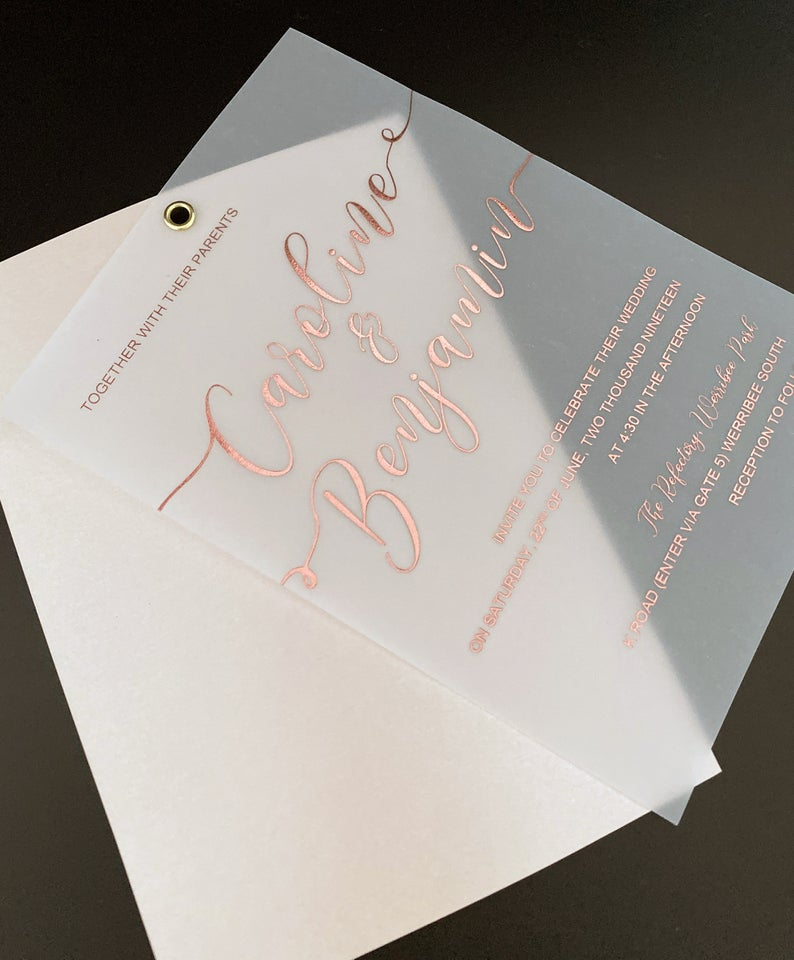 TOGETHER WITH THEIR PARENTS
Caroline
&
Benjamin
INVITE YOU TO CELEBRATE THEIR WEDDING
ON SATURDAY, 22ND OF JUNE, TWO THOUSAND NINETEEN
AT 4:30 IN THE AFTERNOON
The Refectory, Werribee Park
K ROAD (ENTER VIA GATE 5) WERRIBEE SOUTH
RECEPTION TO